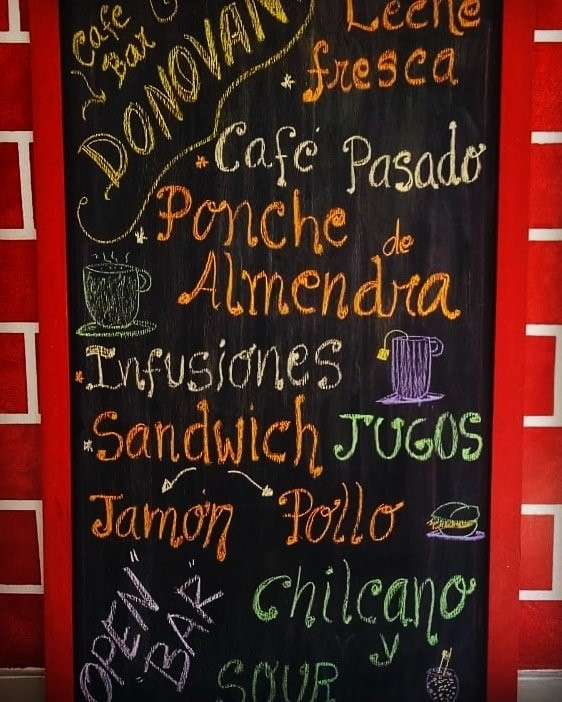 Cafe
Bar
DONOVAN
Leche
* fresca
* Café Pasado
* Ponche de
Almendra
* Infusiones
* Sandwich JUGOS
Jamón Pollo
"OPEN
BAR"
Chilcano
y
SOUR